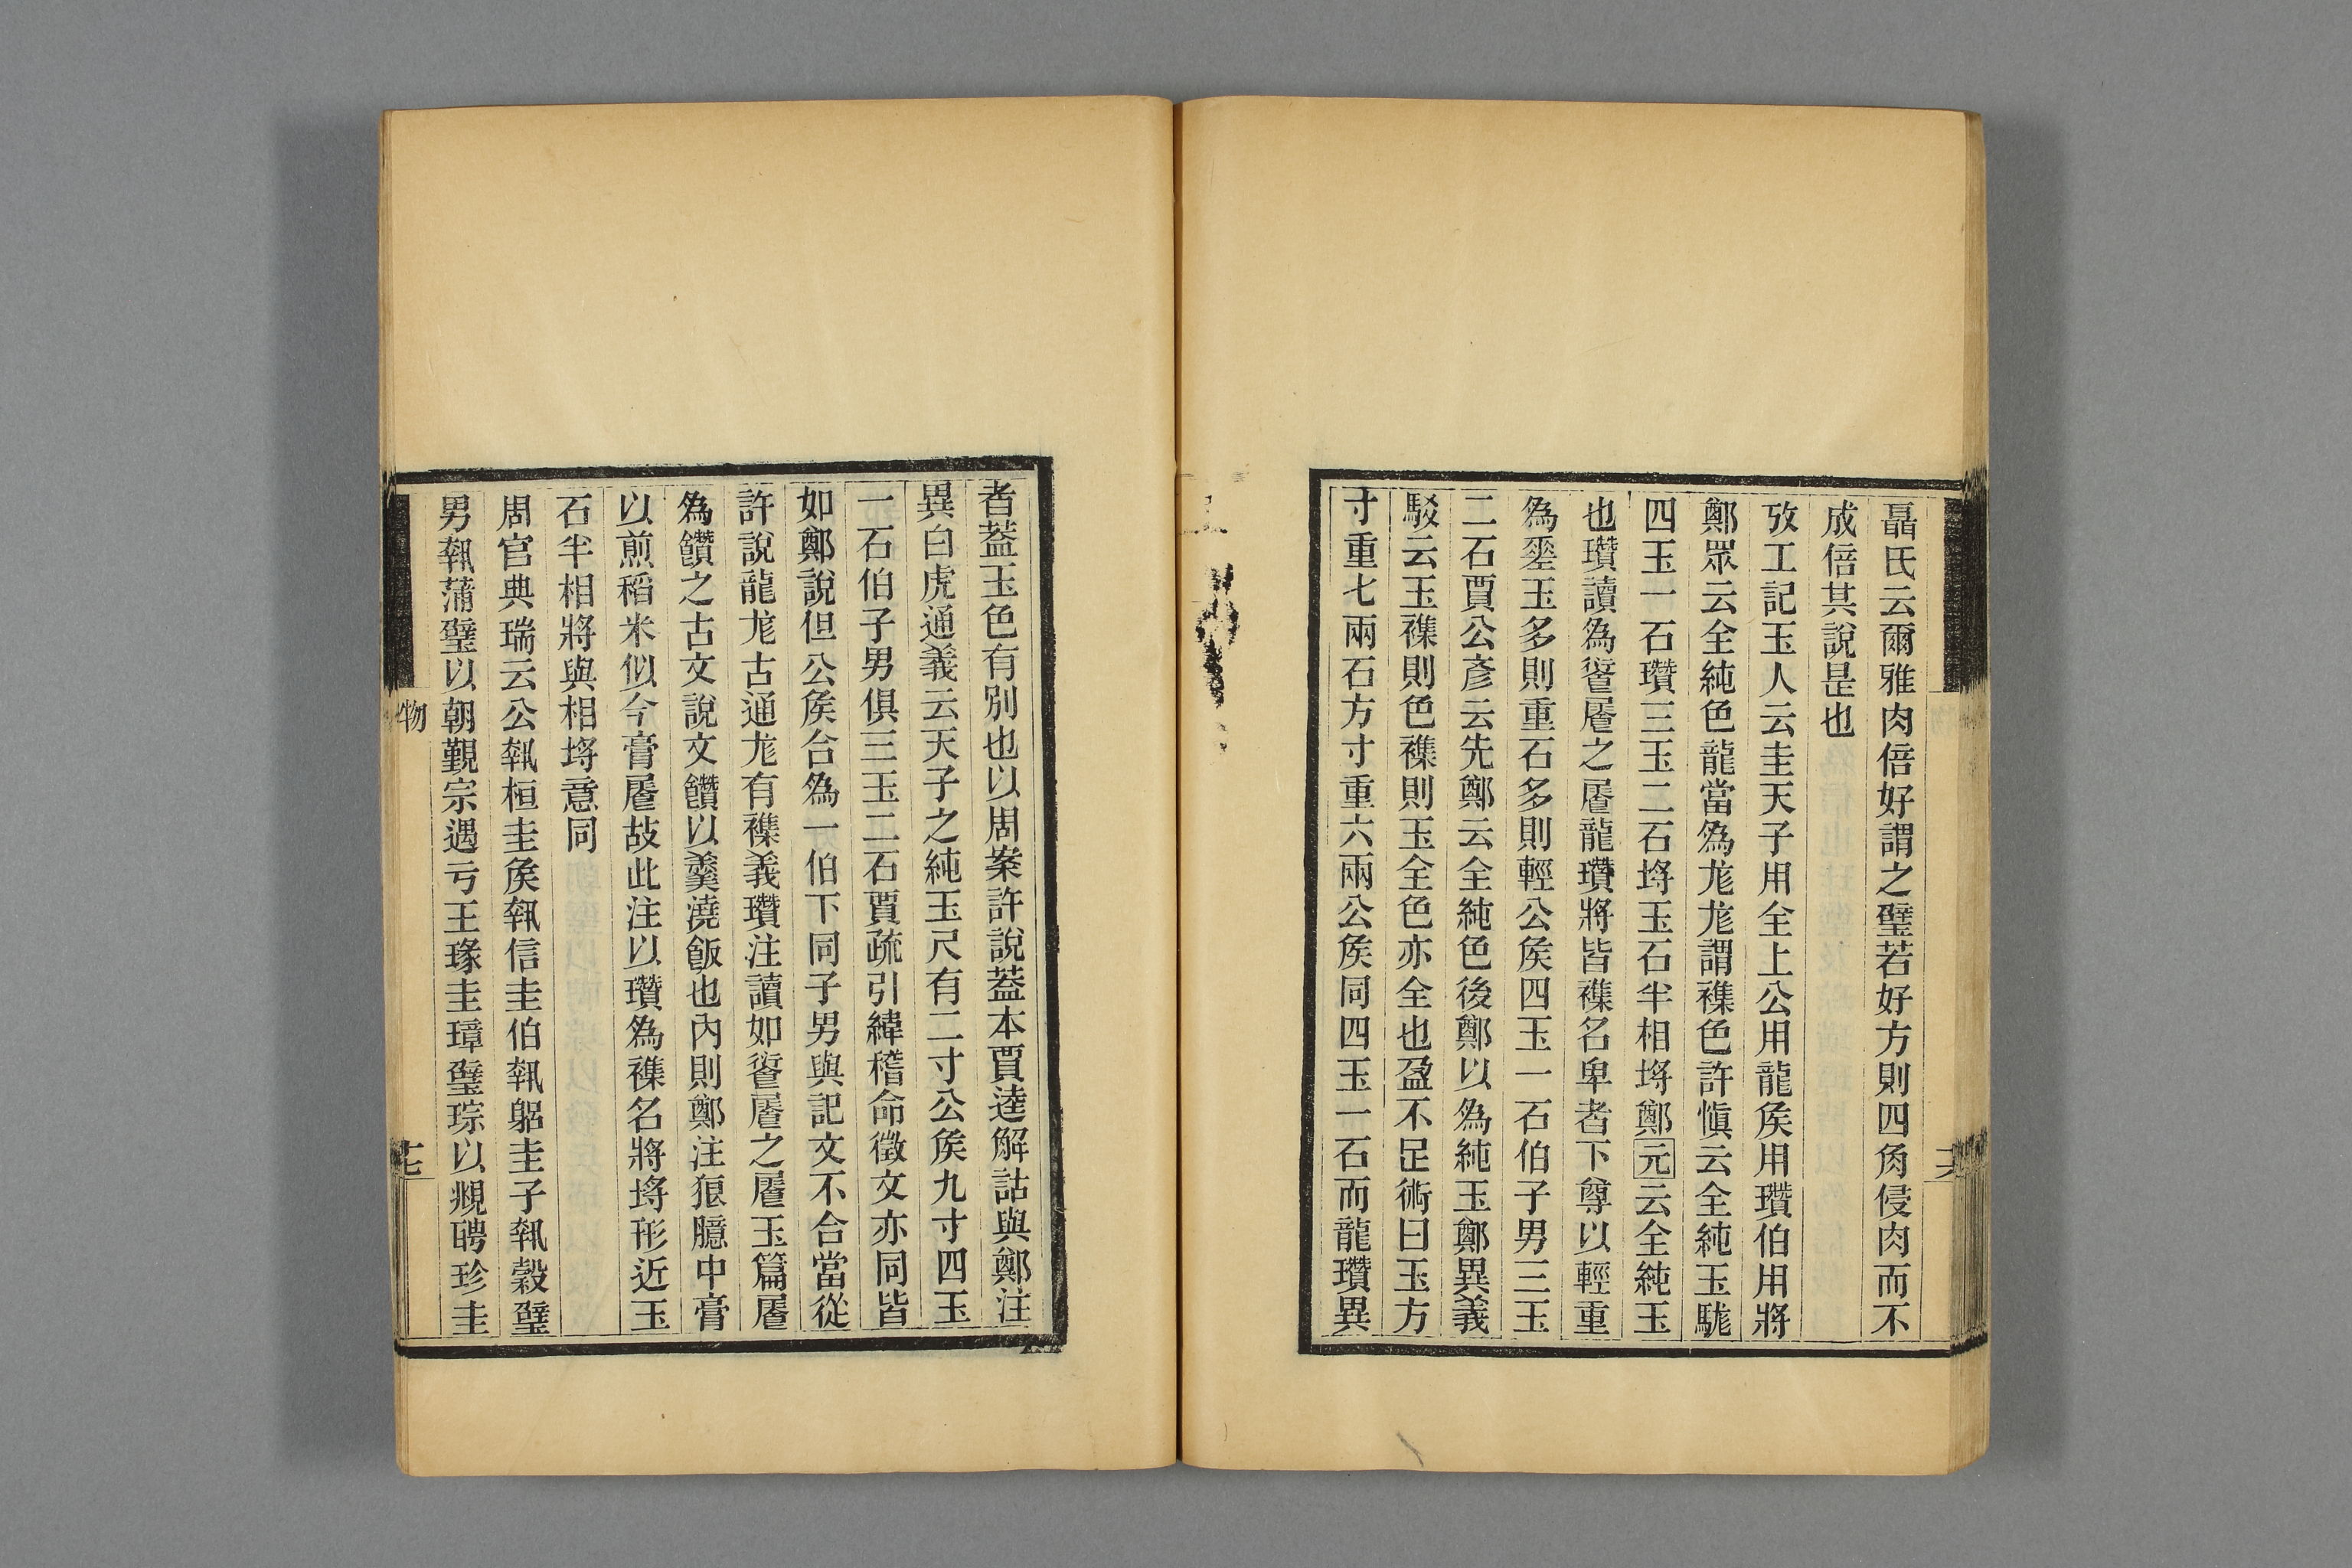 聶氏云爾雅肉倍好謂之璧若好方則四角侵肉而不
成倍其說是也
攷工記玉人云圭天子用全上公用龍矦用瓚伯用將
鄭眾云全純色龍當為尨尨謂襍色許愼云全純玉駹
四玉一石瓚三玉二石埒玉石半相埒鄭元云全純玉
也瓚讀為餐𡳐之𡳐龍瓚將皆襍名卑者下尊以輕重
為差玉多則重石多則輕公矦四玉一石伯子男三玉
二石賈公彥云先鄭云全純色後鄭以為純玉鄭異義
駁云玉襍則色襍則玉全色亦全也盈不足術曰玉方
寸重七兩石方寸重六兩公矦同四玉一石而龍瓚異
者葢玉色有別也以周案許說葢本賈逵解詁與鄭注
異白虎通義云天子之純玉尺有二寸公矦九寸四玉
一石伯子男俱三玉二石賈疏引緯稽命徵文亦同皆
如鄭說但公矦合為一伯下同子男與記文不合當從
許說龍尨古通尨有襍義瓚注讀如餐𡳐之𡳐玉篇𡳐
為饡之古文說文饡以羹澆飯也內則鄭注狼臅中膏
以煎稻米似今膏𡳐故此注以瓚為襍名將埒形近玉
石半相將與相埒意同
周官典瑞云公執桓圭矦執信圭伯執躬圭子執穀璧
男執蒲璧以朝覲宗遇亏王瑑圭璋璧琮以覜聘珍圭
物
十七